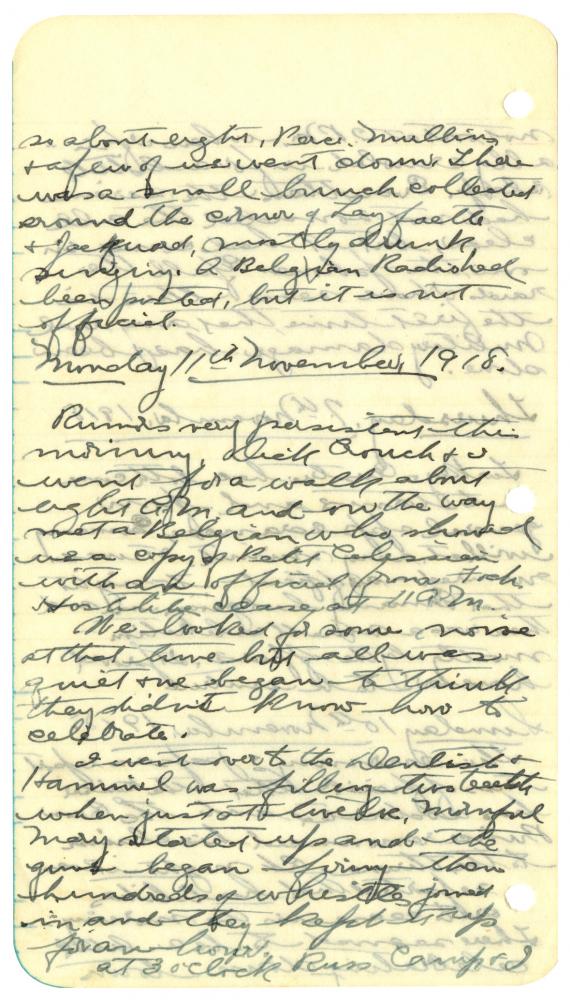 so about eight, Perc. Mullins
& a few of us went down. There
was a small bunch collected
around the corner of Layfaette
& Jacquard, mostly drunk,
singing. A Belgian Radio had
been posted, but it is not
official.
Monday 11th November, 1918.
Rumors very persistent this
morning, Dick Crouch & I
went for a walk about
eight A.M. and on the way
met a Belgian who showed
us a copy of Petit
with an official from Foch.
Hostilities cease at 11 A.M.
We looked for some noise
at that time but all was
quiet & we began to think
they didn't know how to
celebrate.
I went over to the Dentist &
Hammel was filling two teeth
when just at twelve, Mornful
Mary started up and the
guns began firing then
hundreds of whistles joined
in and they kept it up
for an hour.
at 3 o'clock Russ Camp & I